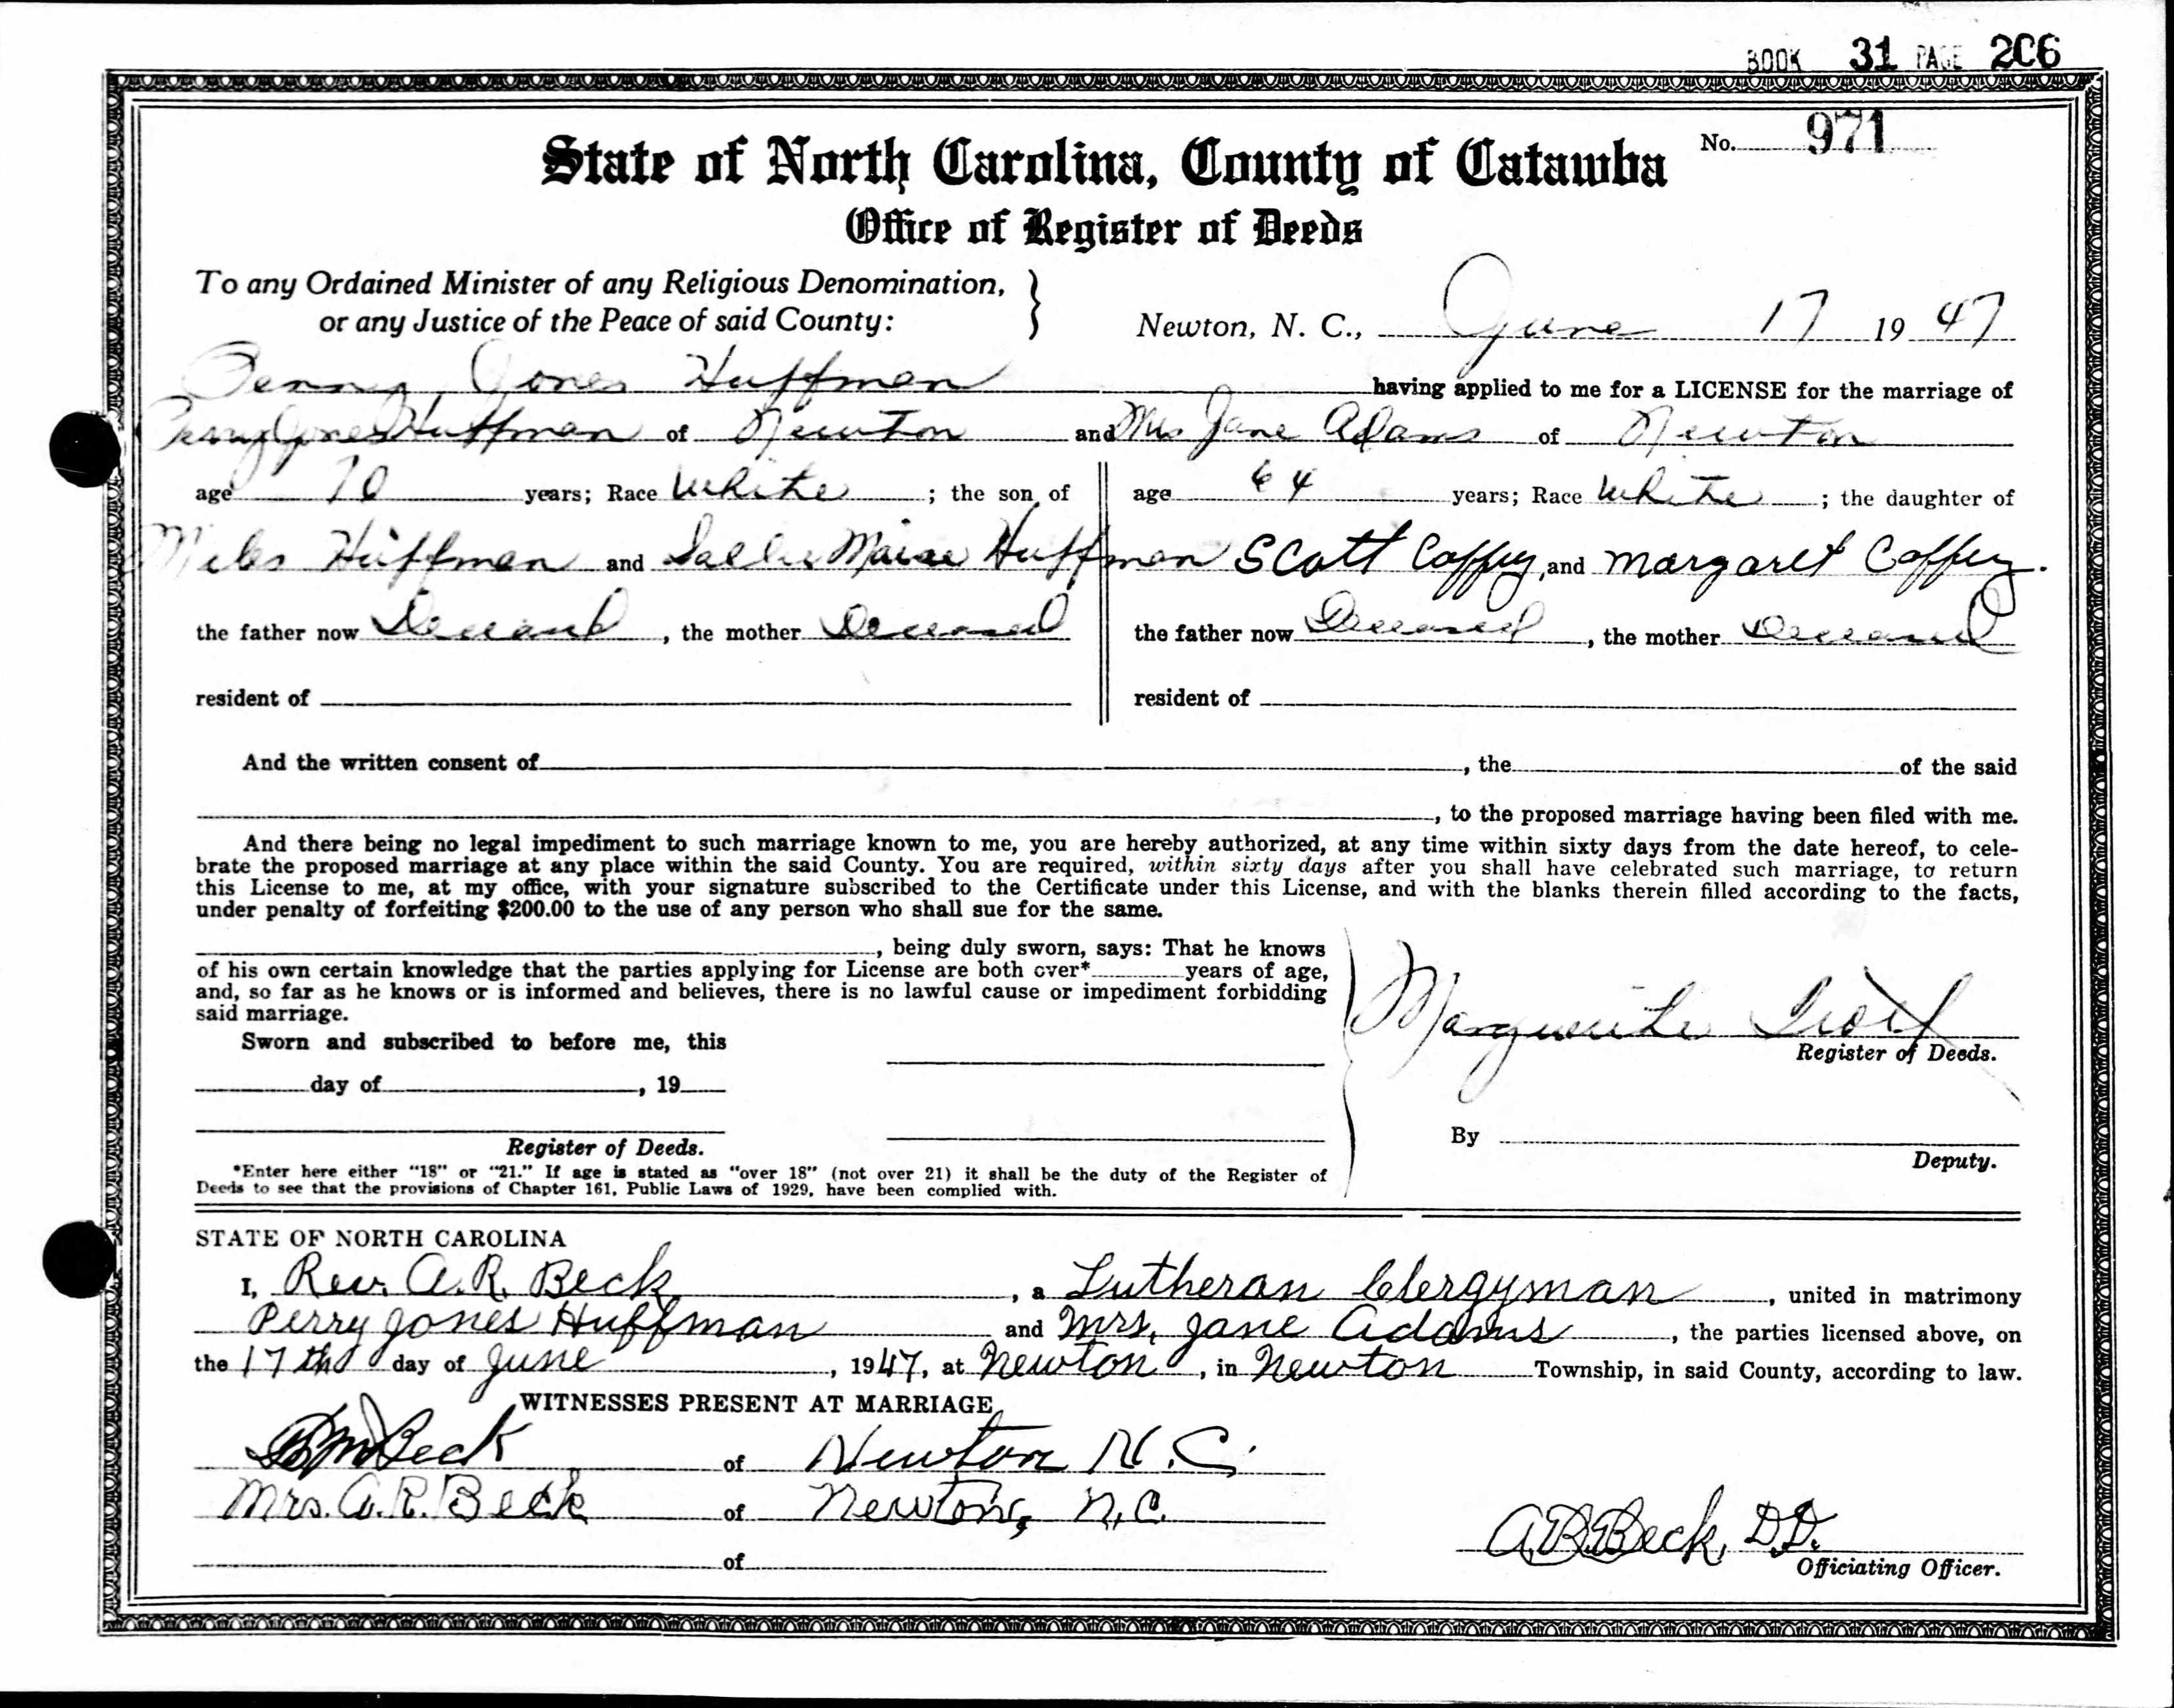 BOOK 31 PAGE 206
No. 971
State of North Carolina, County of Catawba
Office of Register of Deeds
To any Ordained Minister of any Religious Denomination,
or any Justice of the Peace of said County:
Newton, N. C., June 17 1947
Perry Jones Huffman having applied to me for a LICENSE for the marriage of
Perry Jones Huffman of Newton and Mrs Jane Adams of Newton
age 70 years; Race White ; the son of
age 64 years; Race White ; the daughter of
Miles Huffman and Sallie Huffman
Scott Coffey, and Margaret Coffey.
the father now Deceased, the mother Deceased
the father now Deceased, the mother Deceased
resident of
resident of
And the written consent of , the of the said
, to the proposed marriage having been filed with me.
And there being no legal impediment to such marriage known to me, you are hereby authorized, at any time within sixty days from the date hereof, to cele-
brate the proposed marriage at any place within the said County. You are required, within sixty days after you shall have celebrated such marriage, to return
this License to me, at my office, with your signature subscribed to the Certificate under this License, and with the blanks therein filled according to the facts,
under penalty of forfeiting $200.00 to the use of any person who shall sue for the same.
, being duly sworn, says: That he knows
of his own certain knowledge that the parties applying for License are both over* years of age,
and, so far as he knows or is informed and believes, there is no lawful cause or impediment forbidding
said marriage.
Sworn and subscribed to before me, this
day of , 19
Register of Deeds.
*Enter here either "18" or "21." If age is stated as "over 18" (not over 21) it shall be the duty of the Register of
Deeds to see that the provisions of Chapter 161, Public Laws of 1929, have been complied with.
Marguerite
Register of Deeds.
By
Deputy.
STATE OF NORTH CAROLINA
I, Rev. A.R. Beck , a Lutheran Clergyman , united in matrimony
Perry Jones Huffman and Mrs. Jane Adams , the parties licensed above, on
the 17th day of June , 1947, at Newton , in Newton Township, in said County, according to law.
WITNESSES PRESENT AT MARRIAGE
Beck of Newton N.C.
Mrs. A.R. Beck of Newton, N.C.
of
A.R. Beck, D.D.
Officiating Officer.